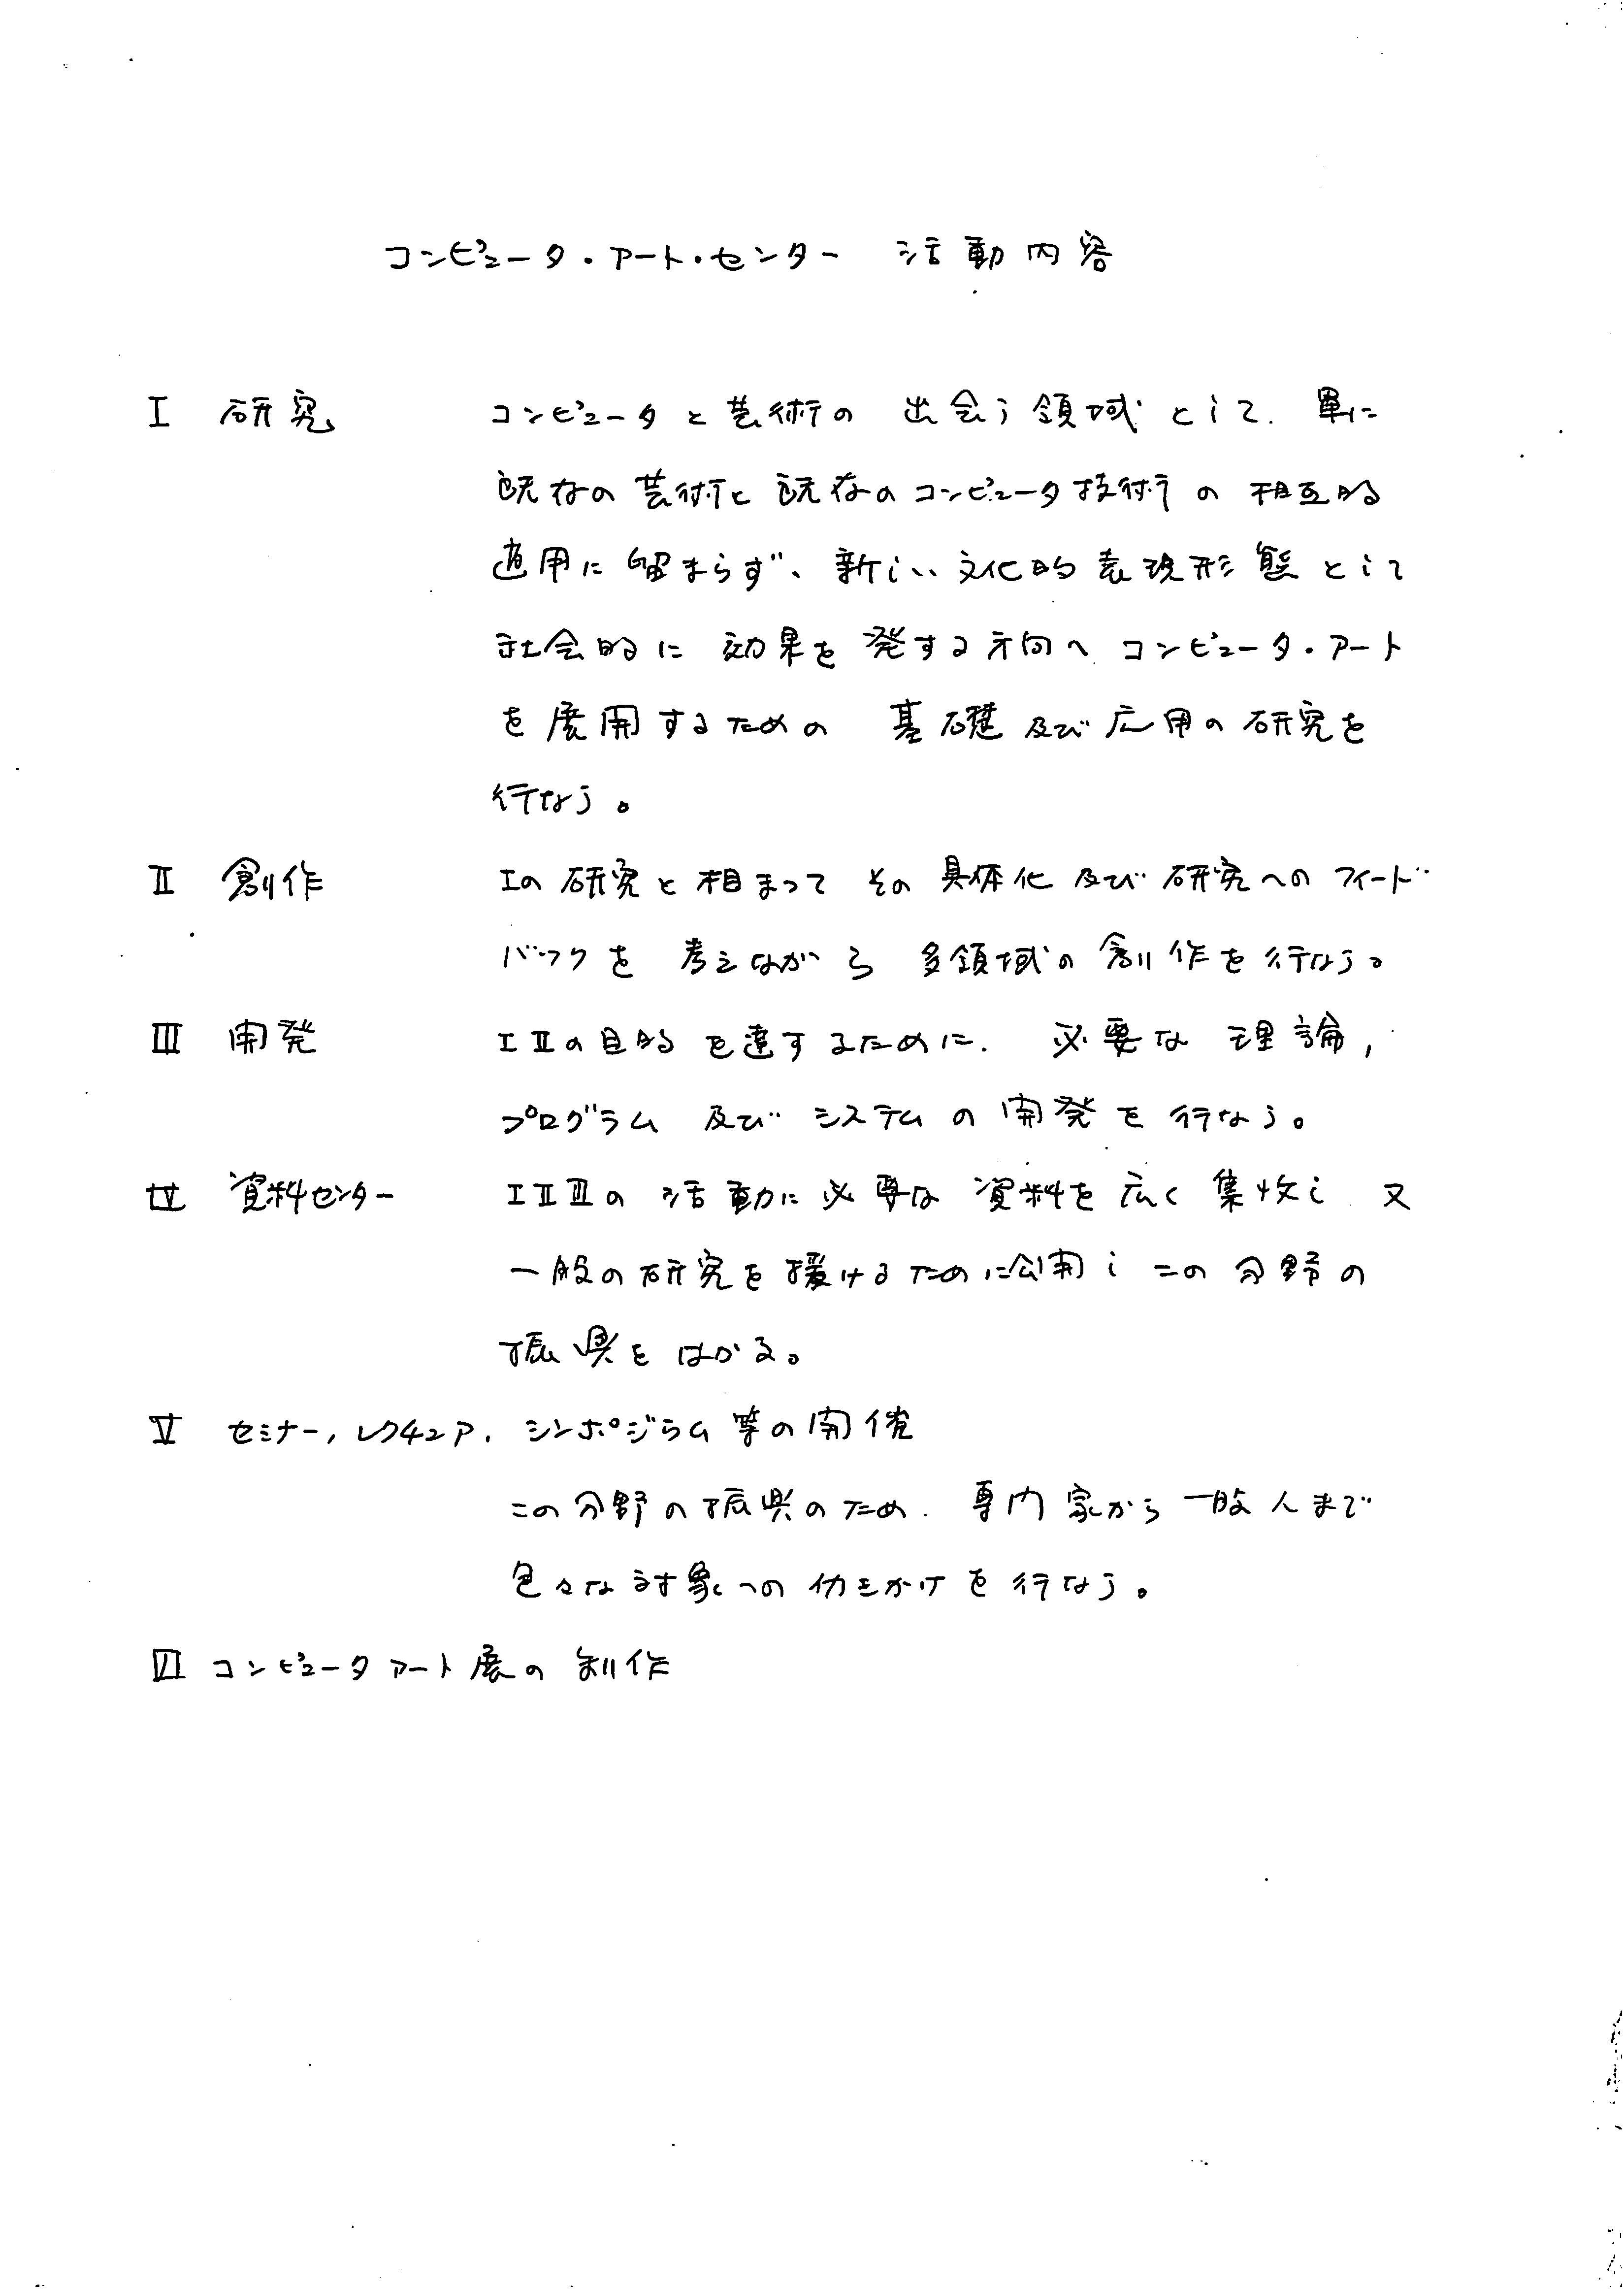 コンピュータ・アート・センター 活動内容
I 研究 コンピュータと芸術の 出会う領域として. 単に
既存の芸術と既存のコンピュータ技術の相互的
適用に留まらず、新しい文化的表現形態として
社会的に効果を発する方向へコンピュータ・アート
を展開するための 基礎及び応用の研究を
行なう。
II 創作 Iの研究と相まって その具体化及び研究へのフィード
バックを考えながら多領域の創作を行なう。
III 開発 I IIの目的を達するために. 必要な理論,
プログラム及びシステムの開発を行なう。
IV 資料センター I II IIIの活動に必要な資料を広く集收し 又
一般の研究を援けるために公開し この分野の
振興をはかる。
V セミナー, レクチュア, シンポジウム等の開催
この分野の振興のため. 専門家から一般人まで
色々な対象への働きかけを行なう。
VI コンピュータアート展の制作